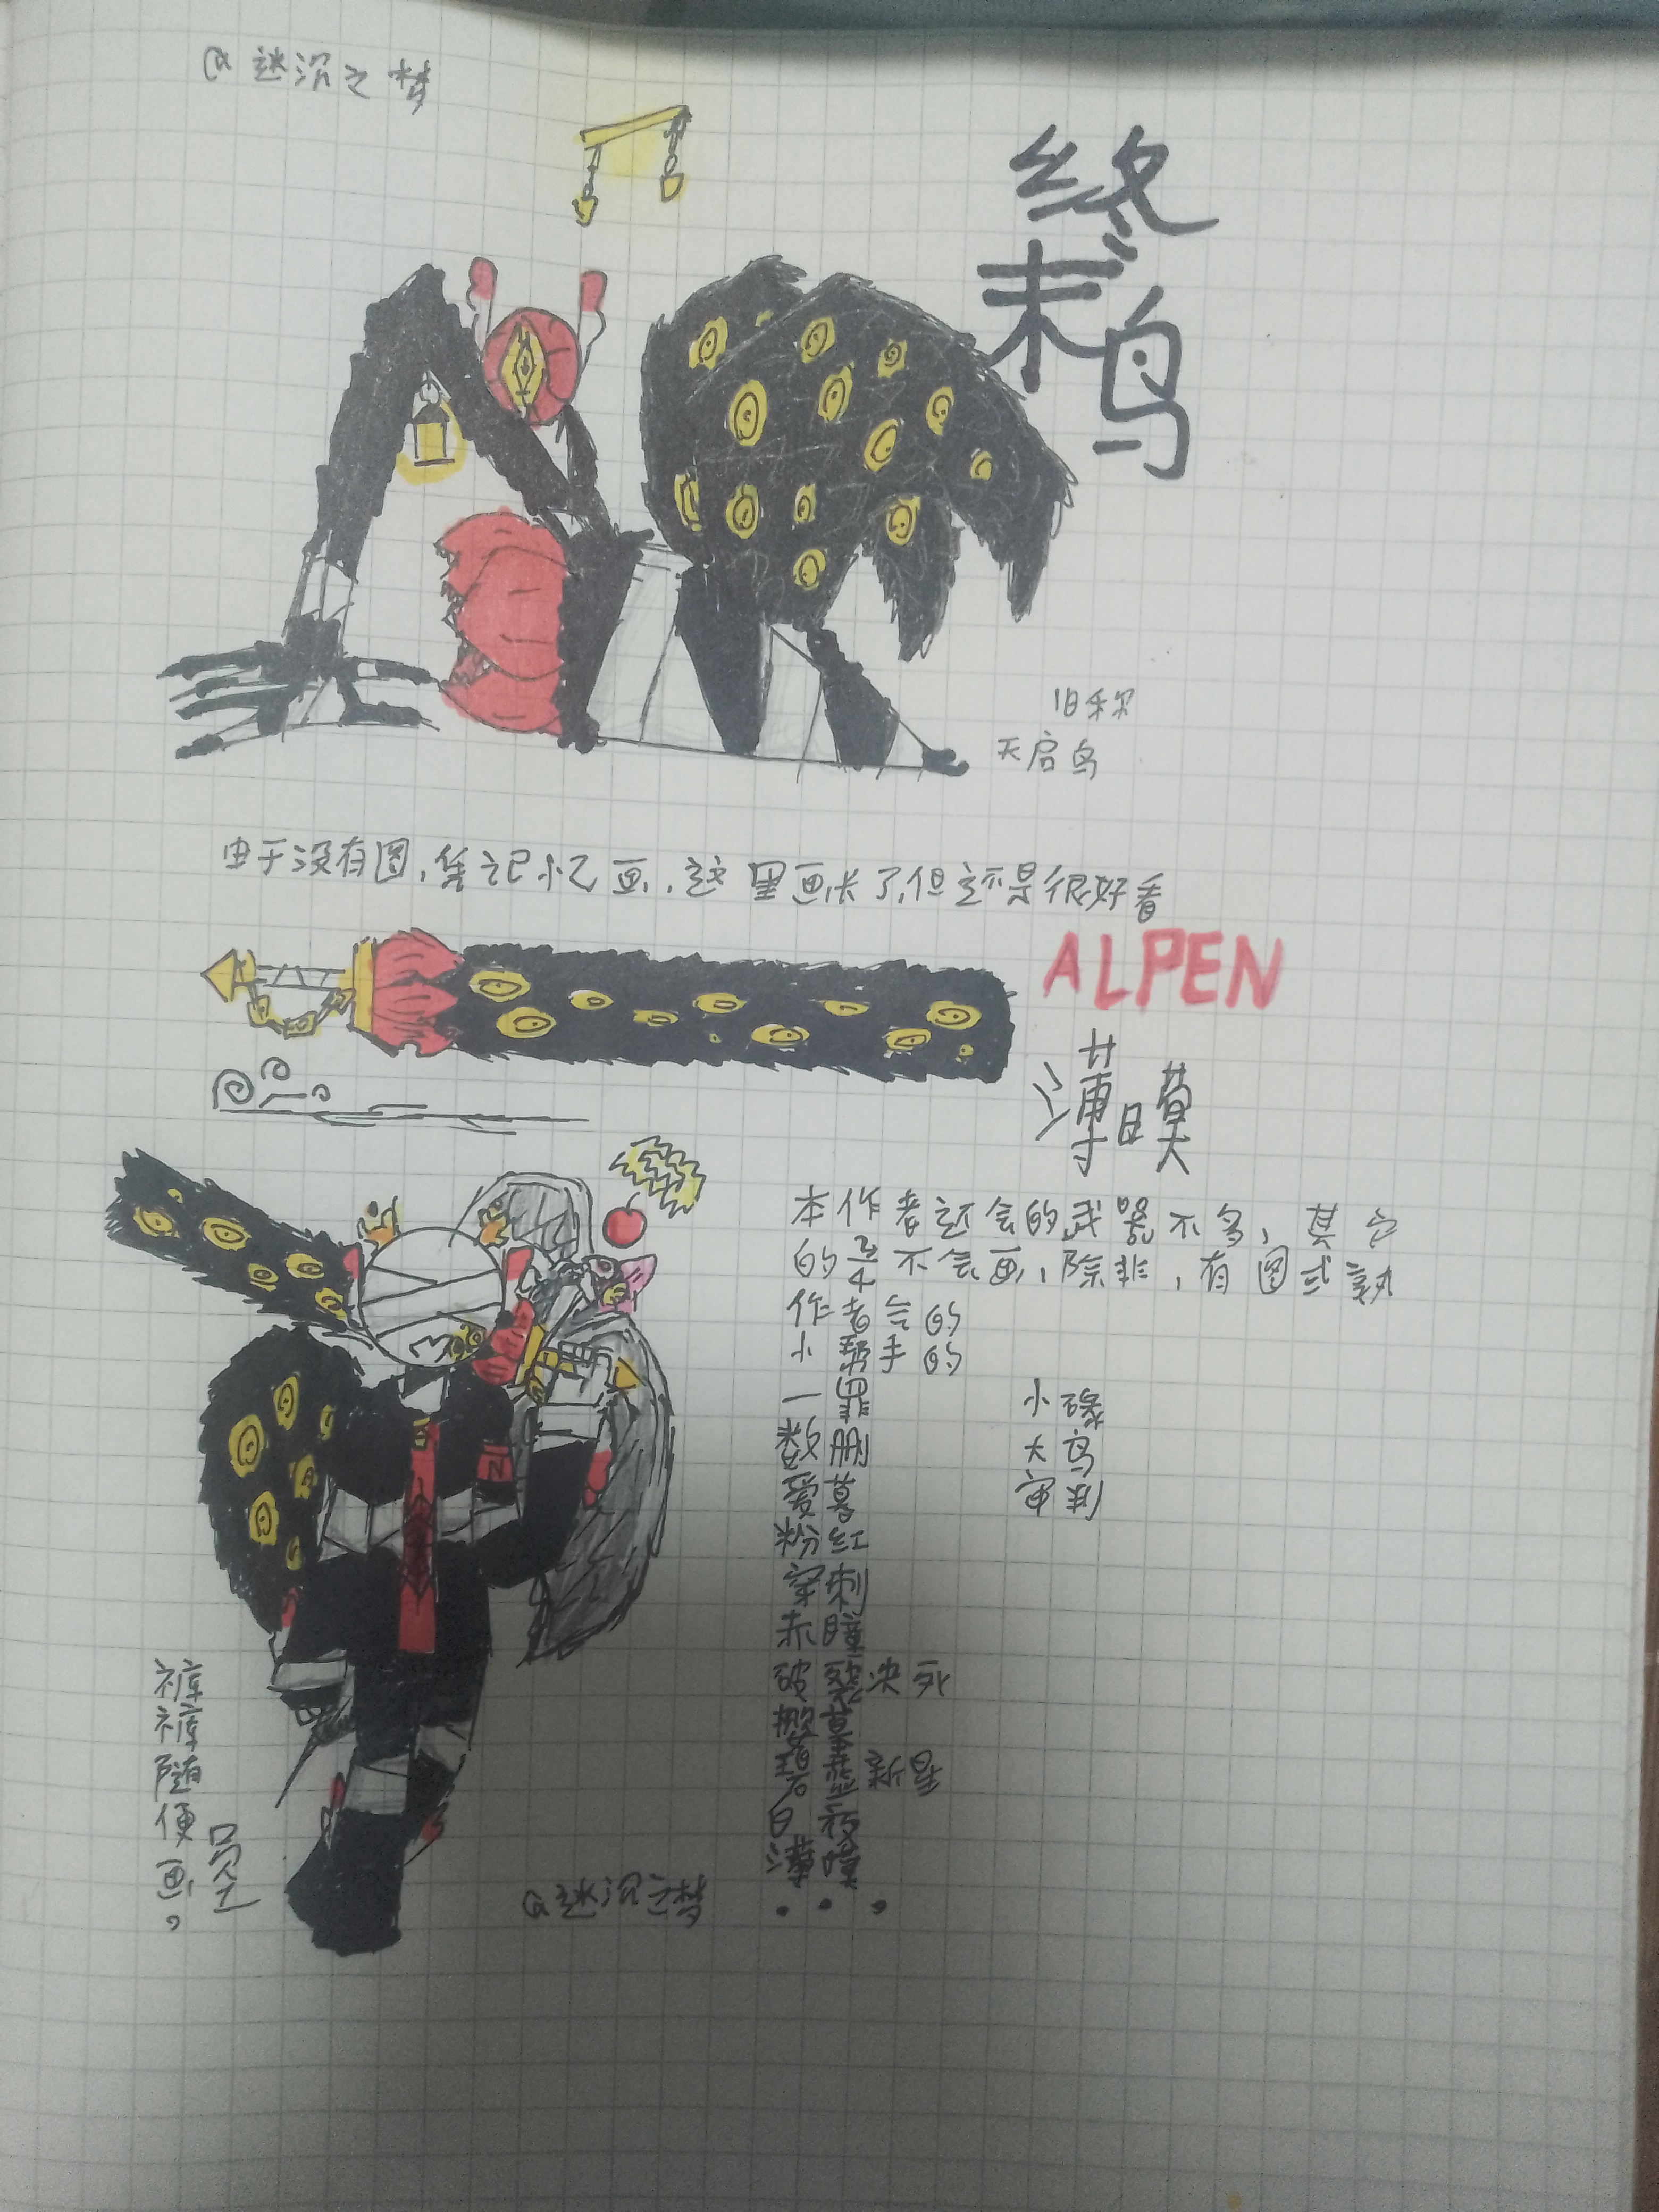 @迷沉之梦
终末鸟
旧称
天启鸟
由于没有图,凭记忆画,这里画长了,但还是很好看
ALPEN
薄暝
本作者还会的武器不多,其它
的 3/4 不会画,除非,有图或熟
作者会的
小帮手的
一罪
数删
爱慕
粉红
穿刺
赤瞳
破裂决死
新星
白夜
薄暝
...
小喙
大鸟
审判
裤裤随便画。
@迷沉之梦